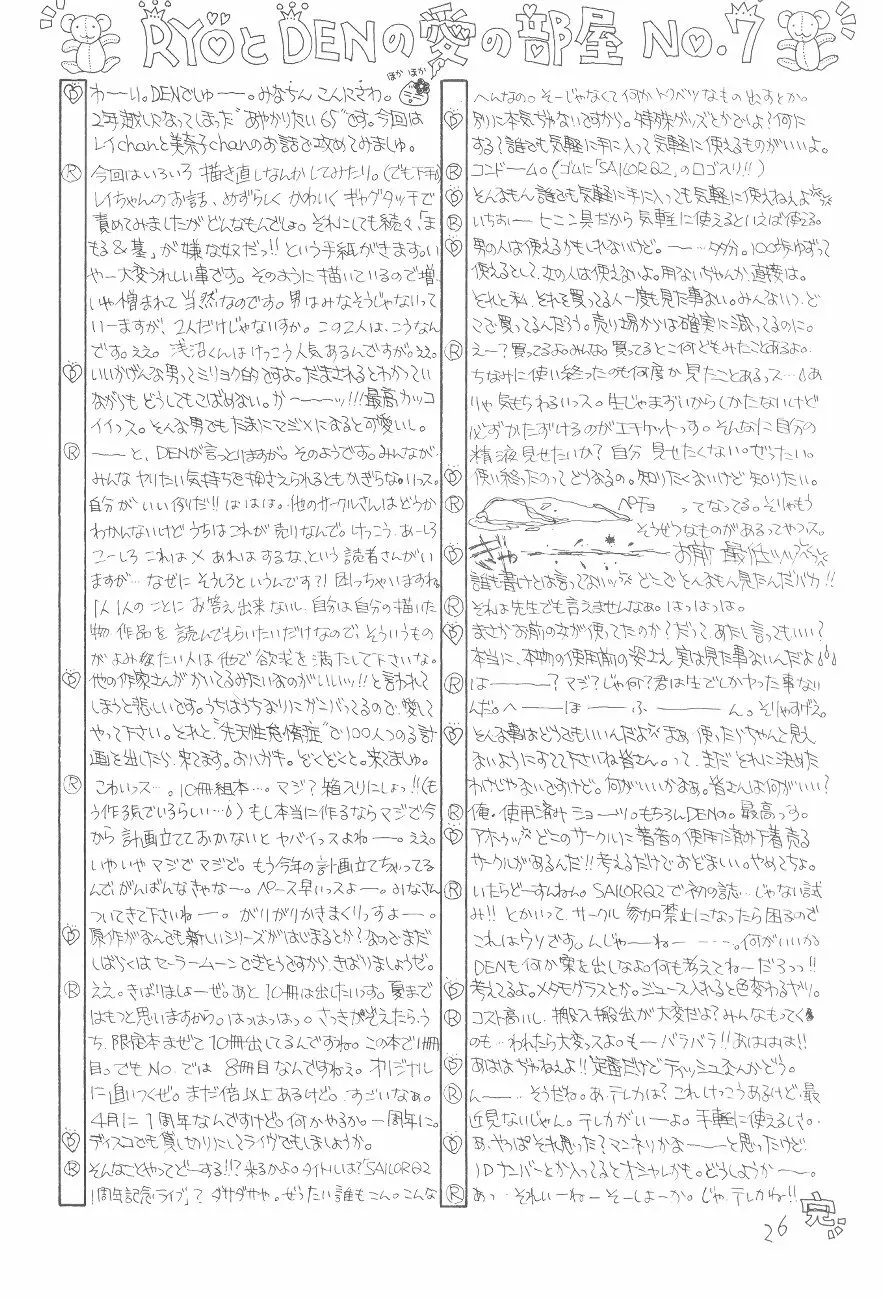 RYOとDENの愛の部屋 No.7
ほか ほか
D わーい。DENでしゅー。みなちん こんにさわ。
2年越しになってしまった“あやかりたい65”です。今回は
レイchanと美奈子chanのお話で攻めてみましゅ。
R 今回はいろいろ 描き直しなんかしてみたり。(でも下手)
レイちゃんのお話、めずらしく かわいく ギャグタッチで
責めてみましたが どんなもんでしょ。それにしても続々、「ま
もる&基」が嫌な奴だっ!! という手紙がきます。い
やー大変うれしい事です。そのように描いているので増、
いや憎まれて当然なのです。男はみなそうじゃないって
いーますが、2人だけじゃないすか。この2人は、こうなん
です。ええ。浅沼くんはけっこう人気あるんですが。ええ。
D いいかげんな男ってミリョク的ですよ。だまされるとわかってい
ながらも どうしてもこばめない。かーーッ!!!最高カッコ
イイっス。そんな男でもたまにマジメになると可愛いし。
R ーーと、DENが言っとりますが。そのようです。みんなが、
みんな ヤりたい気持ちを押さえられるともかぎらないっス。
自分がいい例りだ!! はははは。他のサークルさんはどうか
わかんないけど うちはこれが売りなんで。けっこう、あーしろ
こーしろ これは× あれはするな、という読者さんがい
ますが…なぜに そうしろというんです?! 困っちゃいますね。
1人1人のことに お答え出来ないし、自分は自分の描いた
物 作品を 読んでもらいたいだけなので、そういうもの
がよみたい人は他で欲求を満たして下さいな。
D 他の作家さんがかいてるみたいなのがいいッ!!と言われて
しまうと悲しいです。うちはうちなりにガンバってるので、愛して
やって下さい。それと、“先天性怠惰症”で100人つのる計
画を出したら、来てます。おハガキ。どくどくと。来てましゅ。
R こわいっス…。10冊組本…。マジ?箱入りにしょっ!!(も
う作る気でいるらしい…) もし本当に作るならマジで今
から 計画立てておかないと ヤバイっスよねー。ええ。
いやいや マジで マジで。もう今年の計画立てちゃってる
んで がんばんなきゃなー。ペース早いっスよー。みなさん
ついてきて下さいねー。がりがりかきまくりっすよー。
D 原作がなんでも新しいシリーズがはじまるとか?なのでまだ
しばらくはセーラームーンできそうですから、きばりましょうぜ。
R ええ。きばりましょーぜ。あと10冊は出したいっす。夏まで
はもつと思いますから。はっはっはっ。さっきかぞえたら、う
ち、限定本まぜて10冊出してるんですね。この本で11冊
目。でもNo.では 8冊目なんですねぇ。オリジナル
に追いつくぜ。まだ倍以上あるけど。すごいなぁ。
4月に1周年なんですけど。何かやるか。一周年に。
D ディスコでも貸しきりにしてライヴでもしましょうか。
R そんなことやってどーする!!?来るかよ。タイトルは?「SAILORQ2
1周年記念ライブ」? ダサダサや。ぜったい誰もこん。こんな
へんなの。そーじゃなくて何かトクベツなもの出すとか。
D 別に本気ぢゃないですから。特殊グッズとかでしょ?何に
する?誰でも気軽に手に入って気軽に使えるものがいいよ。
R コンドーム。(ゴムに「SAILORQ2」のロゴ入り!!)
D そんなもん 誰でも気軽に手に入っても気軽に使えねえよ
R いちおー 七ニニ具だから 気軽に使えるといえば使える。
D 男の人は使えるかもしれないけど。ー…多分。100歩ゆずって
使えるとして、女の人は使えないよ。用ないぢゃんか、直接は。
それと私、それを買ってる人一度も見た事ない。みんないつ、ど
こで買ってるんだろう。売り場からは確実に減ってるのに。
R えー?買ってるよ。みんな。買ってるとこ何どもみたことあるよ。
ちなみに使い終ったのも何度か見たことあるっス…あ
りゃ気もちわるいっス。生じゃまずいからしかたないけど
必ずかたずけるのがエチケットっす。そんなに自分の
精液見せたいか?自分、見せたくない。ぜったい。
D 使い終ったのってどうなるの。知りたくないけど知りたい。
R ペチョ ってなってる。そりゃもう
そうぜつなものがあるってやつっス。
D ぎゃ お前 最低ッッ
誰も書けとは言ってないッ どこで そんなもん見たんだバカ!!
R それは先生でも言えませんなぁ。はっはっは。
D まさかお前の女が使ってたのか?だって、あたし言ってもいい?
本当に、本物の使用前の姿さえ、実は見た事ないんだよ
R はーーー?マジ?じゃ何?君は生でしかヤった事ない
んだ。へーーほーーふーーん。そりゃすげえ。
D そんな事はどうでもいいんだよ まぁ、使ったらちゃんと見え
ないようにすてて下さいね皆さん。って、まだ それに決めた
わけじゃないですけど。何がいいかなぁ。皆さんは何がいい?
R 俺・使用済み ショーツ。もちろんDENの。最高っす。
D アホゥッ どこのサークルに著者の使用済み下着売る
サークルがあるんだ!!考えるだけで おぞましい。やめてちょ。
R いたらどーすんねん。SAILORQ2で初の誌…じゃない試
み!! とかいって サークル 参加禁止になったら困るので
これはウソです。んじゃーねー ----。何がいいか
DENも何か案を出しなよ。何も考えてねーだろっっ!!
D 考えてるよ。メタモグラスとか。ジュース入れると色変わるヤツ。
R コスト高いし、搬入搬出が大変だよ?みんなもってく
のも…われたら大変っスよ。もーバラバラ!!あははは!!
D あははぢゃねぇよ!!定番だけどティッシュなんかどう。
R んー…そうだね。あ、テレカは?これけっこうあるけど、最
近見ないじゃん。テレカがいーよ。手軽に使えるしさ。
D あ、やっぱそれ思った?マンネリかなーーと思ったけど
IDナンバーとか入ってるとオシャレかも。どうしようかー。
R あっ…それいーねー そーしよーか。じゃ、テレカね!!
完
26